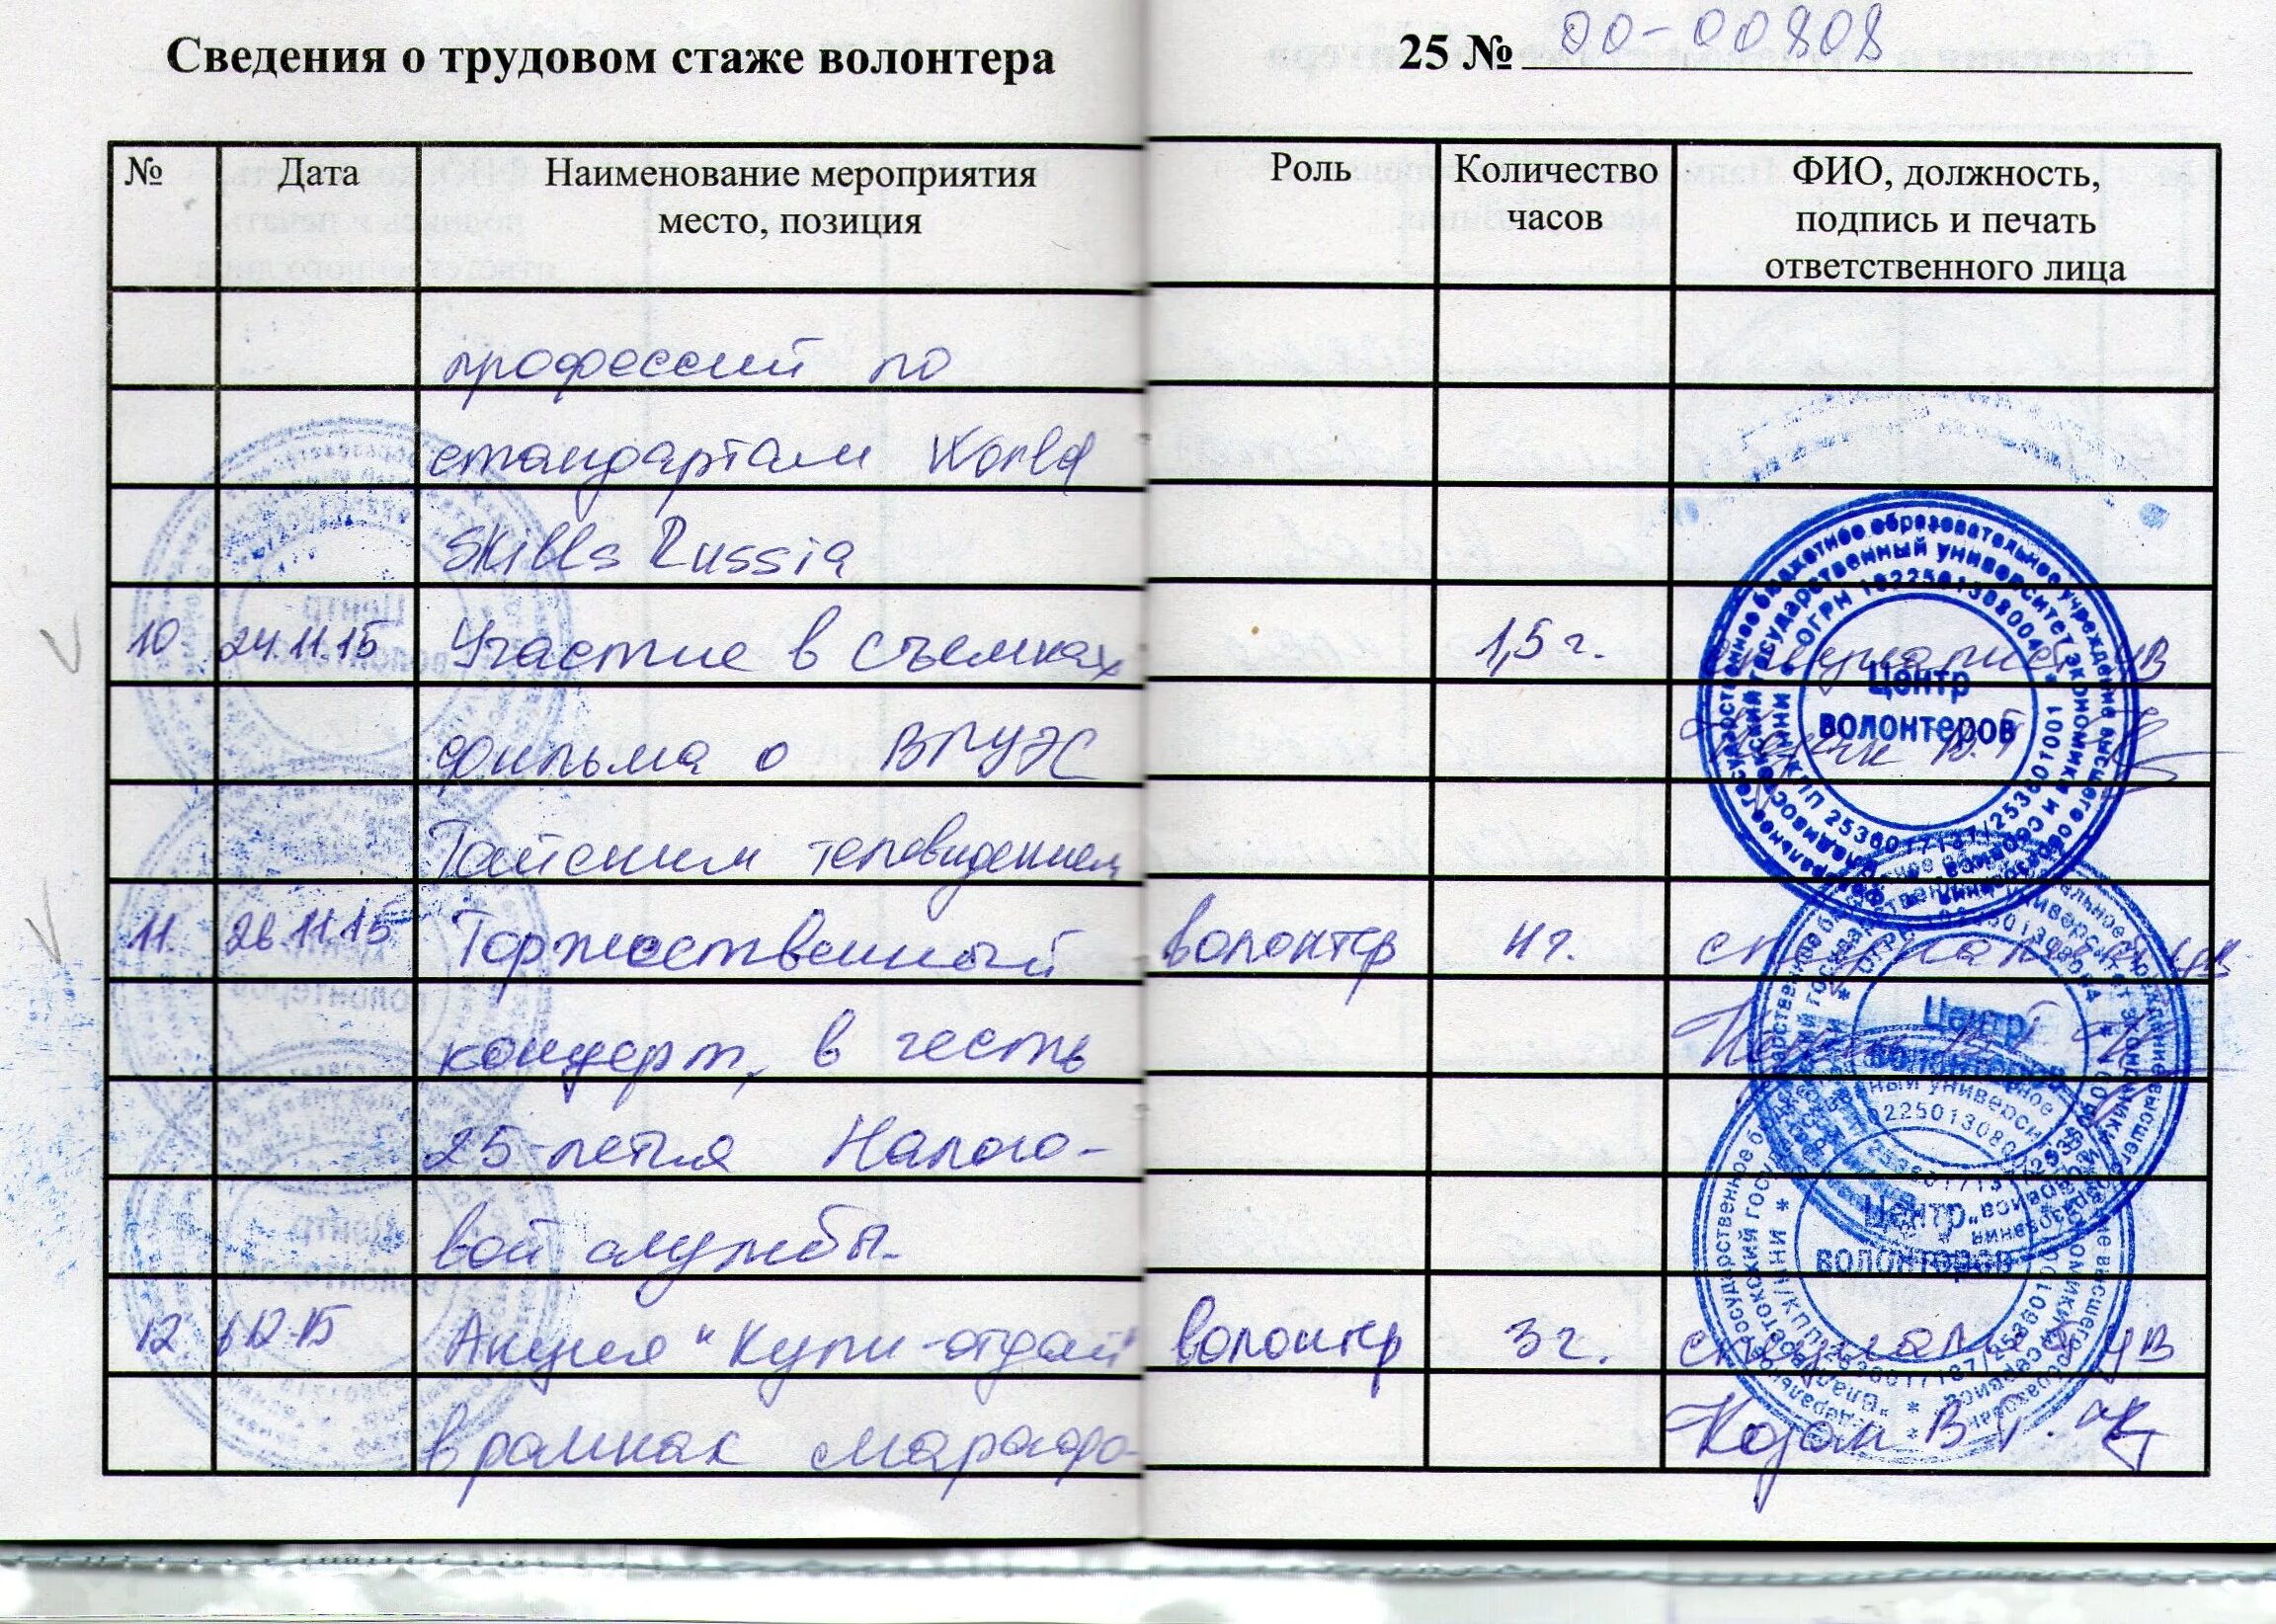 Сведения о трудовом стаже волонтера
25 № 00-00808
№ Дата Наименование мероприятия место, позиция Роль Количество часов ФИО, должность, подпись и печать ответственного лица
профессий по
стандартам World
Skills Russia
10 24.11.15 Участие в съемках 1,5 г. специалист ЦВ
фильма о ВГУЭС
Тайским телевидением
11. 26.11.15 Торжественный волонтер 4г. специалист ЦВ
концерт, в честь
25-летия Налого-
вой службы.
12. 12.15 Акция "Купи-отдай" волонтер 3г. специалист ЦВ
в рамках марафо- В.Г.
Центр
волонтеров
Центр
волонтеров
Центр
волонтеров